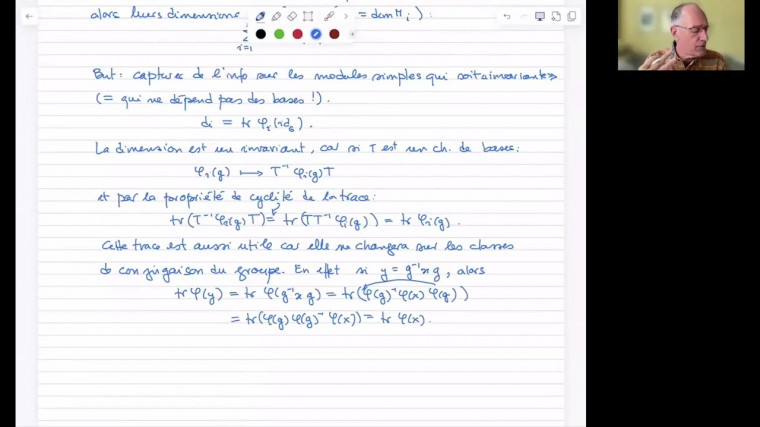 alors leurs dimensions = dim Mi ) :
i=1
But : capturer de l'info sur les modules simples qui soit «invariante»
(= qui ne dépend pas des bases !).
di = tr φi(idG).
La dimension est un invariant, car si T est un ch. de bases :
φi(g) ⟼ T⁻¹ φi(g) T
et par la propriété de cyclité de la trace :
tr(T⁻¹ φi(g) T) = tr(TT⁻¹ φi(g)) = tr φi(g).
Cette trace est aussi utile car elle ne changera sur les classes
de conjugaison du groupe. En effet si y = g⁻¹xg, alors
tr φ(y) = tr φ(g⁻¹xg) = tr(φ(g)⁻¹ φ(x) φ(g))
= tr(φ(g) φ(g)⁻¹ φ(x)) = tr φ(x).